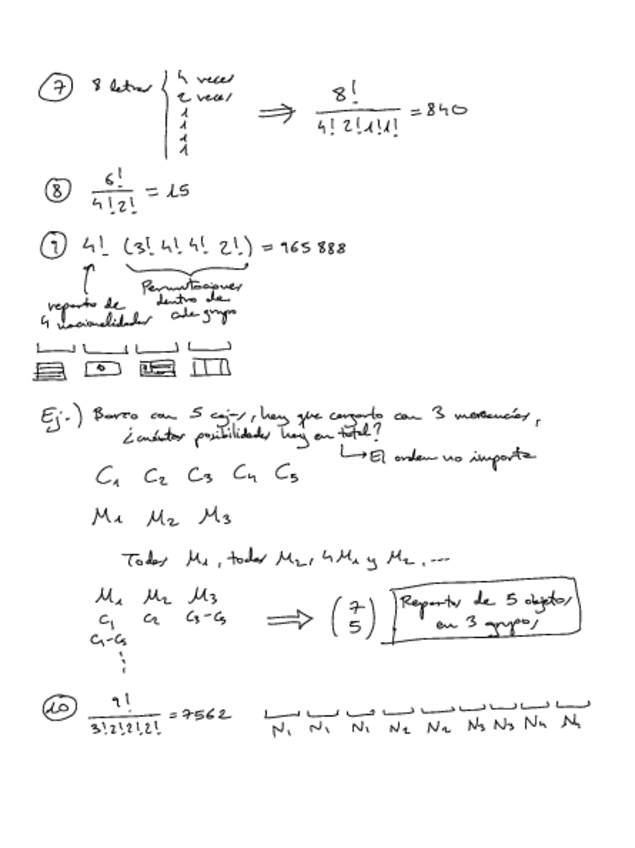 7 8 letras { 4 veces
2 veces
1
1
1
1
⟹ 8! / 4! 2! 1! 1! = 840
8 6! / 4! 2! = 15
9 4! (3! 4! 4! 2!) = 165 888
reparto de 4 nacionalidades
Permutaciones dentro de cada grupo
Ej.) Barco con 5 cajas, hay que cargarlo con 3 mercancías,
¿cuántas posibilidades hay en total?
↳ El orden no importa
C₁ C₂ C₃ C₄ C₅
M₁ M₂ M₃
Todas M₁, todas M₂, 4M₁ y M₂, ...
M₁ M₂ M₃
C₁ C₂ C₃-C₅
C₁-C₅
⋮
⟹ (7 5)
Reparto de 5 objetos
en 3 grupos
10 9! / 3! 2! 2! 2! = 7562
N₁ N₁ N₁ N₂ N₂ N₃ N₃ N₄ N₄